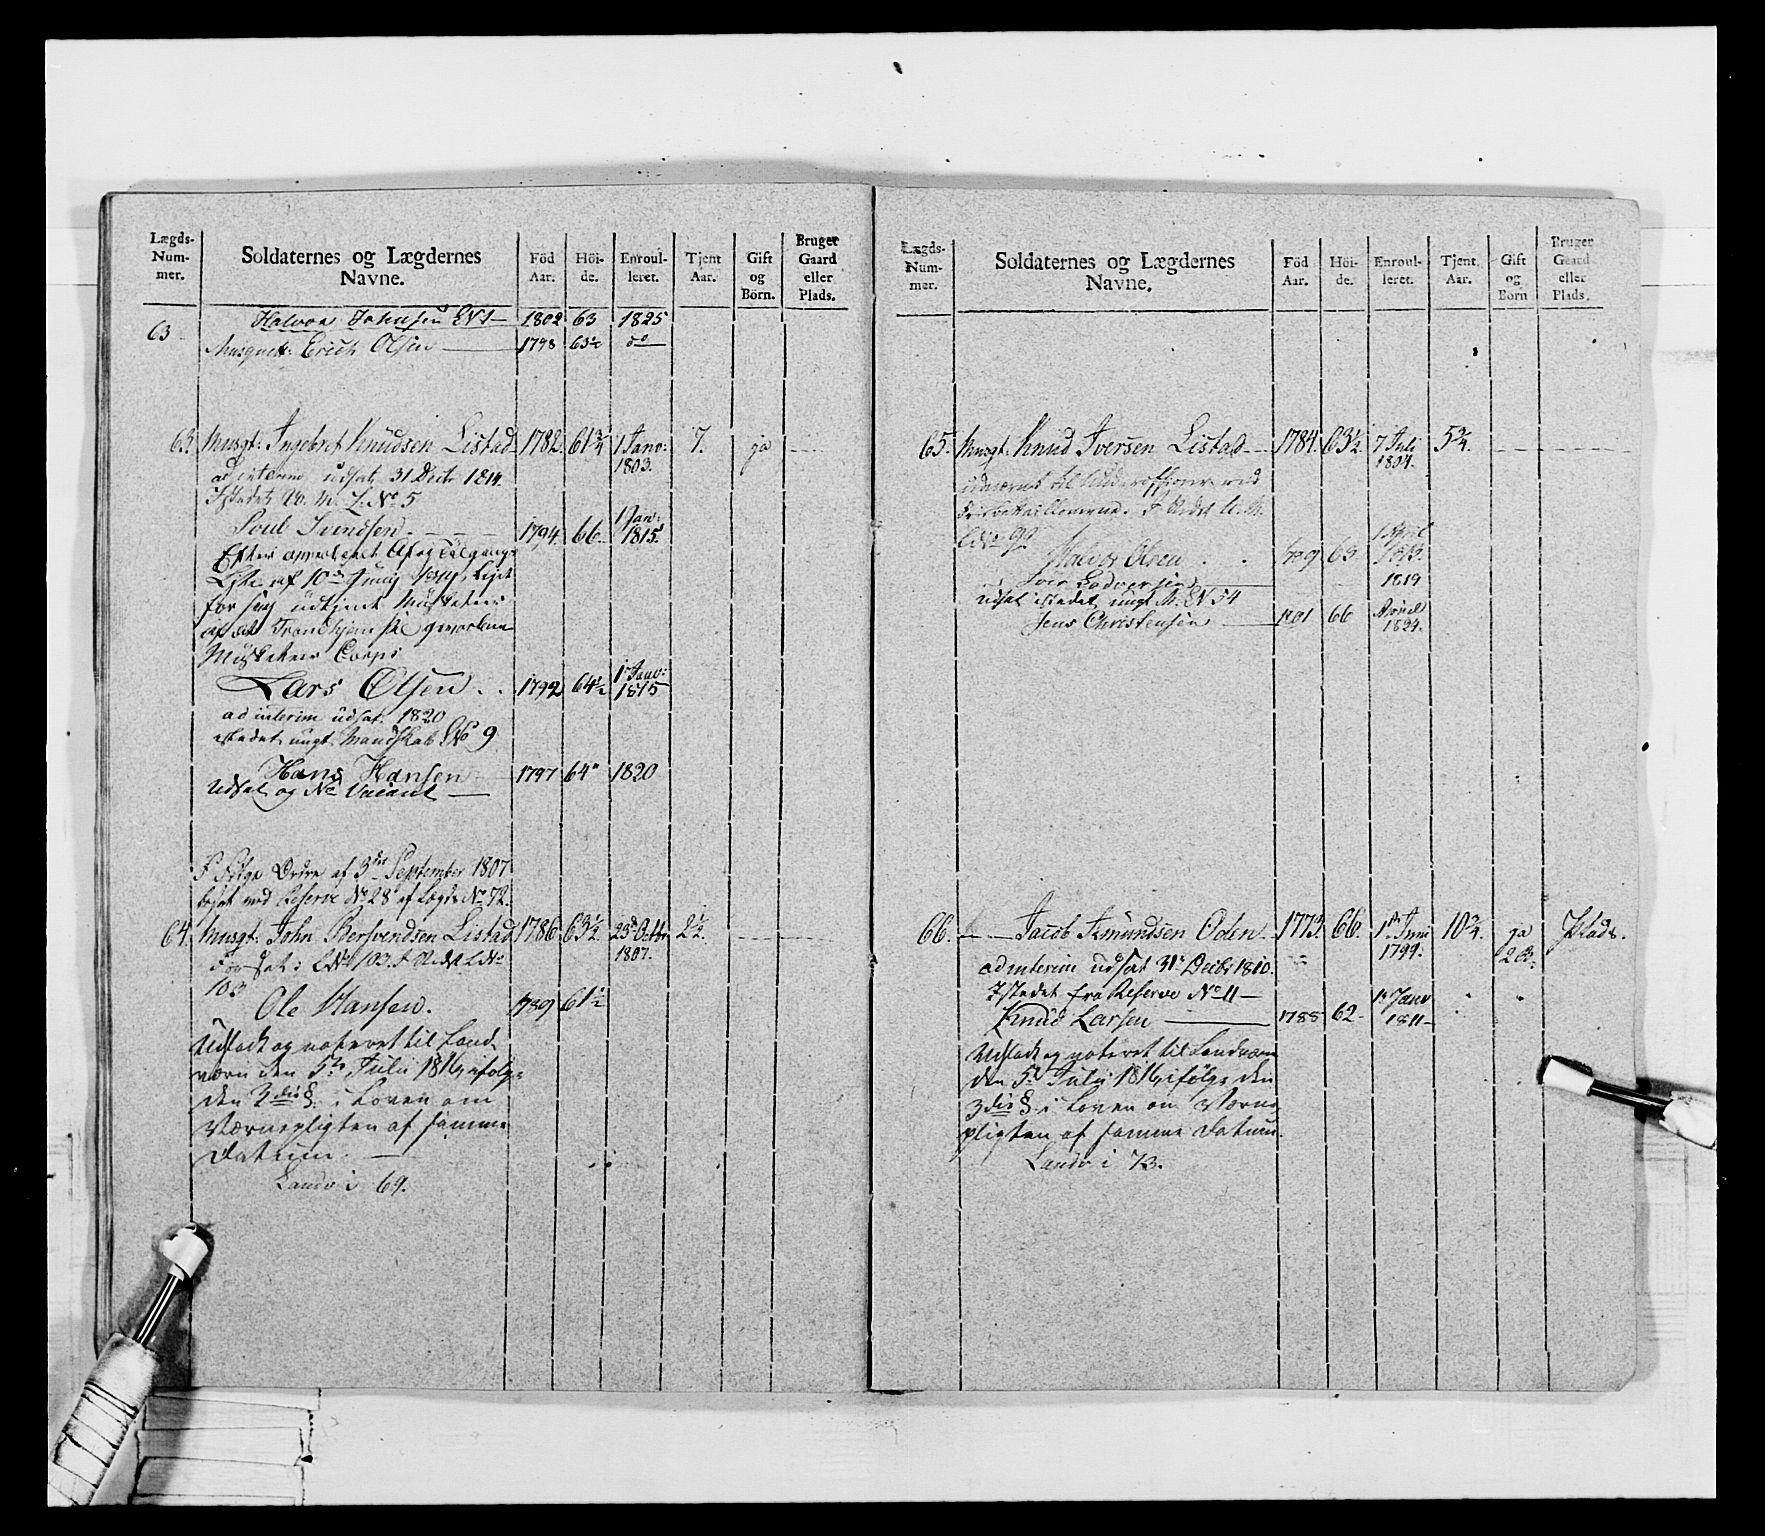 Lægds-Num-mer. Soldaternes og Lægdernes Navne. Föd Aar. Höi-de. Enroul-leret. Tjent Aar. Gift og Börn. Bruger Gaard eller Plads.
Halvor Johnsen 1802 63 1825
63 Musquet: Erich Olsen 1798 63½ do
63. Musqt: Ingebret Knudsen Listad 1782. 61¾ 1 Janv: 1803. 7. ja
ad interim udsat 31 Decbr 1814.
Istedet U. M. L. No 5
Poul Svendsen 1794. 66. 1 Jan: 1815.
Efter Af og Tilgangs
Liste af 10de
for sig udtjent Musketeer
af det Trondhjemske gevorbne
Musketeer Corps
Lars Olsen 1792 64½ 1 Janv: 1815
ad interim udsat. 1820
istedet ungt Mandskab LNo 9
Hans Hansen 1797 64" 1820
Udsat og No Vacant
Ordre af 3die September 1807
besat med Reserve No 28 af Lægds No 72.
64. Musqt: John Bersvendsen Listad 1786 63½. 23de Octbr 1807. 2½.
103
Ole Hansen. 1789 61½
Udsladt og noteret til Land
værn den 5te Julii 1816, ifølge
den 3die §. i Loven om
Værnepligten af samme
Datum.
Landv i 69.
Lægds-Num-mer. Soldaternes og Lægdernes Navne. Föd Aar. Höi-de. Enroul-leret. Tjent Aar. Gift og Börn Bruger Gaard eller Plads.
65. Musqt: Knud Iversen Listad 1784. 63½. 7 Juli 1804. 5¾
til Underofficeer ved
Istedet U. M.
LNo 92
Halvor Olsen 1789 63 1 April 1813.
Iver 1819
udsat istedet ungt M. LN 54
Jens Christensen 1801 66 April 1824.
66. Jacob Amundsen Oden 1773. 66. 1ste Juni 1799. 10¾. ja 2 B: Plads.
ad interim udsat 31 Decbr 1810.
Istedet fra Reserve No 11
Knud Larsen 1788 62 1 Janv 1811
Udsladt og noteret til Landværn
den 5te Julii 1816, ifølge den
3die §. i Loven om Værne
pligten af samme Datum.
Landv i 73.